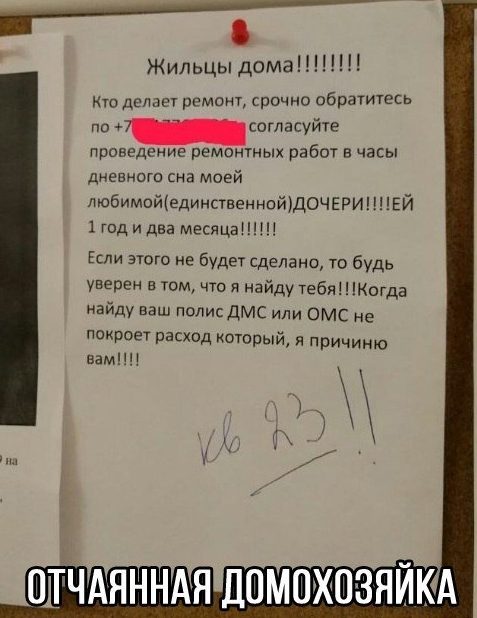 Жильцы дома!!!!!!!!
Кто делает ремонт, срочно обратитесь
по +7 согласуйте
проведение ремонтных работ в часы
дневного сна моей
любимой(единственной)ДОЧЕРИ!!!!ЕЙ
1 год и два месяца!!!!!!
Если этого не будет сделано, то будь
уверен в том, что я найду тебя!!!Когда
найду ваш полис ДМС или ОМС не
покроет расход который, я причиню
вам!!!!
кв 23!!
на
ОТЧАЯННАЯ ДОМОХОЗЯЙКА